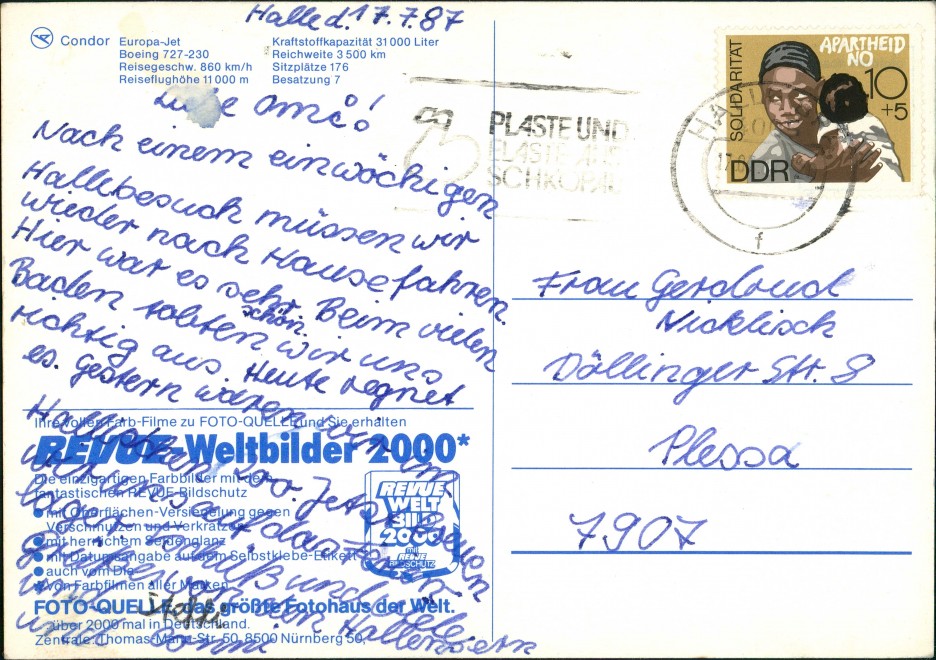 Halle d. 17.7.87
Condor
Europa-Jet
Boeing 727-230
Reisegeschw. 860 km/h
Reiseflughöhe 11000 m
Kraftstoffkapazität 31000 Liter
Reichweite 3500 km
Sitzplätze 176
Besatzung 7
Liebe Omi!
Nach einem einwöchigen
Hallebesuch müssen wir
wieder nach Hause fahren.
Hier war es sehr schön. Beim vielen
Baden tobten wir uns
richtig aus. Heute regnet
es. Gestern waren wir im
Halleschen Zoo. Jetzt freuen
wir uns auf das Ferien
lager.
Gruß und
und
Ihre vollen Farb-Filme zu FOTO-QUELLE und Sie erhalten
REVUE-Weltbilder 2000*
Die einzigartigen Farbbilder mit dem
fantastischen REVUE-Bildschutz
mit Oberflächen-Versiegelung gegen
Verschmutzen und Verkratzen
mit herrlichem Seidenglanz
mit Datumsangabe auf dem Selbstklebe-Etikett
auch vom Dia
von Farbfilmen aller Marken
REVUE
WELT
BILD
2000
mit
REVUE
BILDSCHUTZ
FOTO-QUELLE das größte Fotohaus der Welt.
über 2000 mal in Deutschland.
Zentrale: Thomas-Mann-Str. 50, 8500 Nürnberg 50
PLASTE UND
ELASTE AUS
SCHKOPAU
HALLE
f
SOLIDARITÄT
APARTHEID
NO
10
+5
DDR
Frau Gerdraud
Nicklisch
Döllinger Str. 8
Plessa
7907